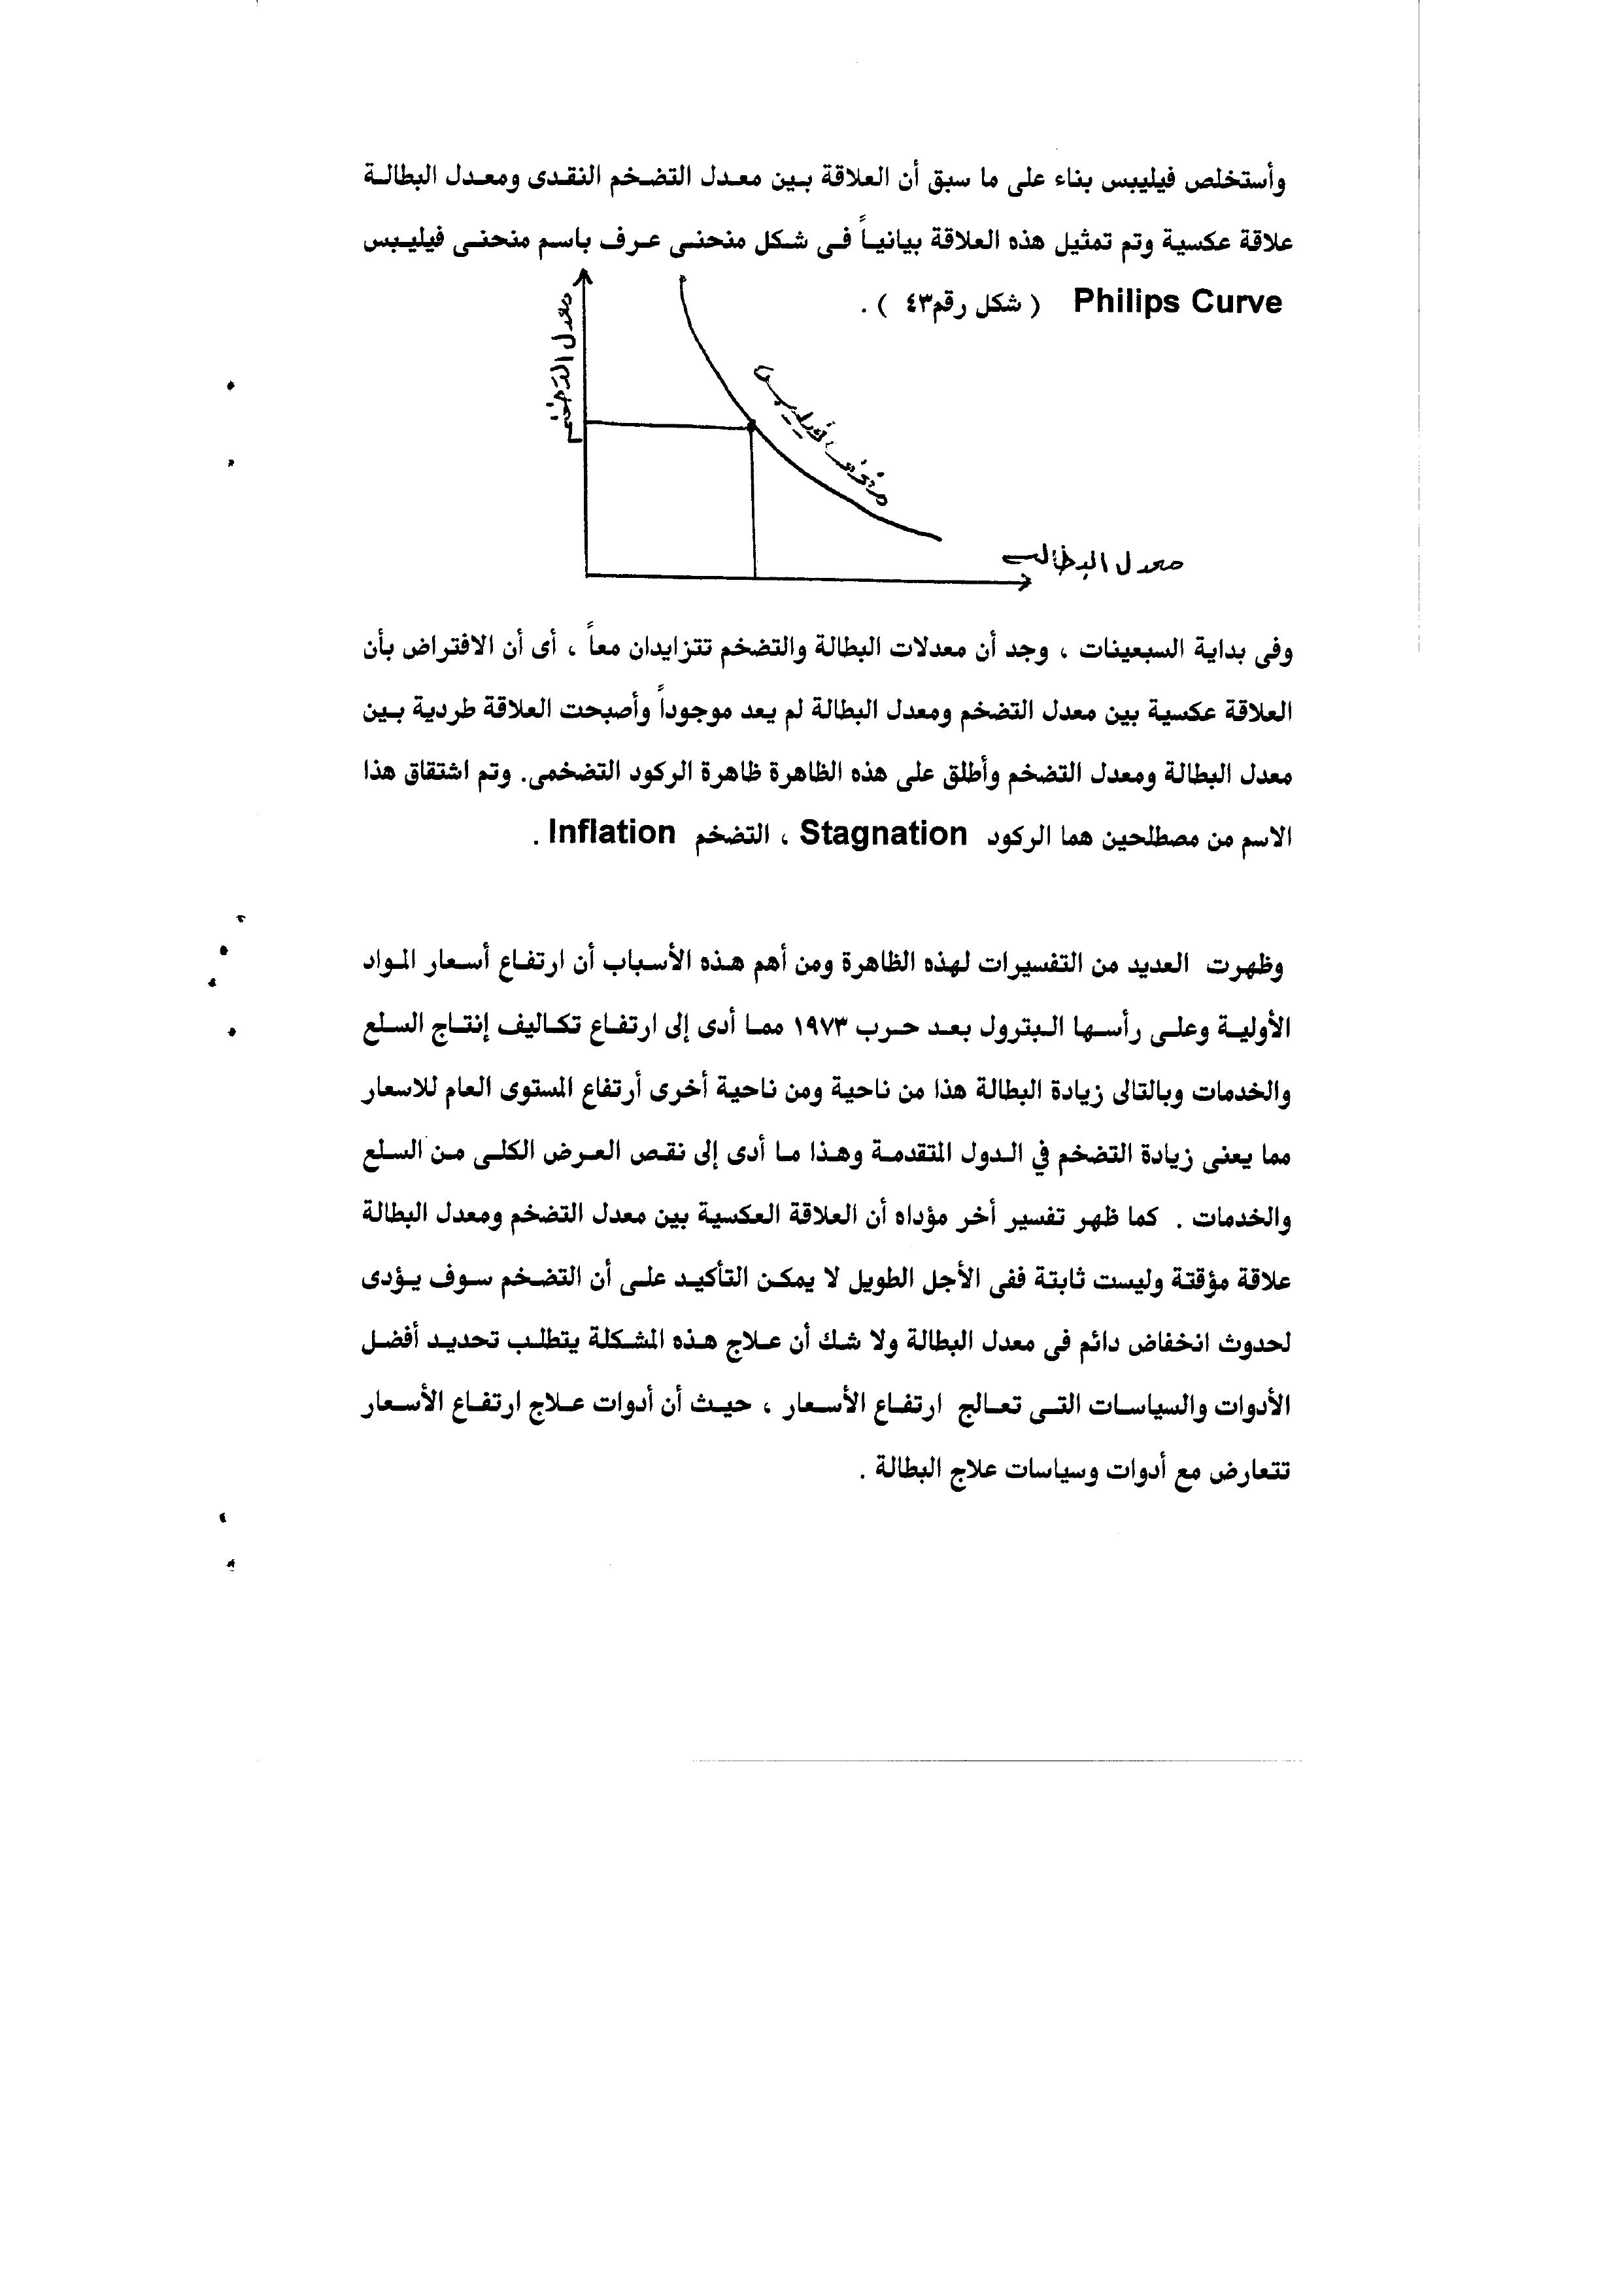 وأستخلص فيليبس بناء على ما سبق أن العلاقة بين معدل التضخم النقدى ومعدل البطالة
علاقة عكسية وتم تمثيل هذه العلاقة بيانياً فى شكل منحنى عرف باسم منحنى فيليبس
Philips Curve ( شكل رقم٤٣ ) .
معدل التضخم
منحنى فيليبس
معدل البطالة
وفى بداية السبعينات ، وجد أن معدلات البطالة والتضخم تتزايدان معاً ، أى أن الافتراض بأن
العلاقة عكسية بين معدل التضخم ومعدل البطالة لم يعد موجوداً وأصبحت العلاقة طردية بين
معدل البطالة ومعدل التضخم وأطلق على هذه الظاهرة ظاهرة الركود التضخمى. وتم اشتقاق هذا
الاسم من مصطلحين هما الركود Stagnation ، التضخم Inflation .
وظهرت العديد من التفسيرات لهذه الظاهرة ومن أهم هذه الأسباب أن ارتفاع أسعار المواد
الأولية وعلى رأسها البترول بعد حرب ١٩٧٣ مما أدى إلى ارتفاع تكاليف إنتاج السلع
والخدمات وبالتالى زيادة البطالة هذا من ناحية ومن ناحية أخرى أرتفاع المستوى العام للاسعار
مما يعنى زيادة التضخم في الدول المتقدمة وهذا ما أدى إلى نقص العرض الكلى من السلع
والخدمات . كما ظهر تفسير أخر مؤداه أن العلاقة العكسية بين معدل التضخم ومعدل البطالة
علاقة مؤقتة وليست ثابتة ففى الأجل الطويل لا يمكن التأكيد على أن التضخم سوف يؤدى
لحدوث انخفاض دائم فى معدل البطالة ولا شك أن علاج هذه المشكلة يتطلب تحديد أفضل
الأدوات والسياسات التى تعالج ارتفاع الأسعار ، حيث أن أدوات علاج ارتفاع الأسعار
تتعارض مع أدوات وسياسات علاج البطالة .